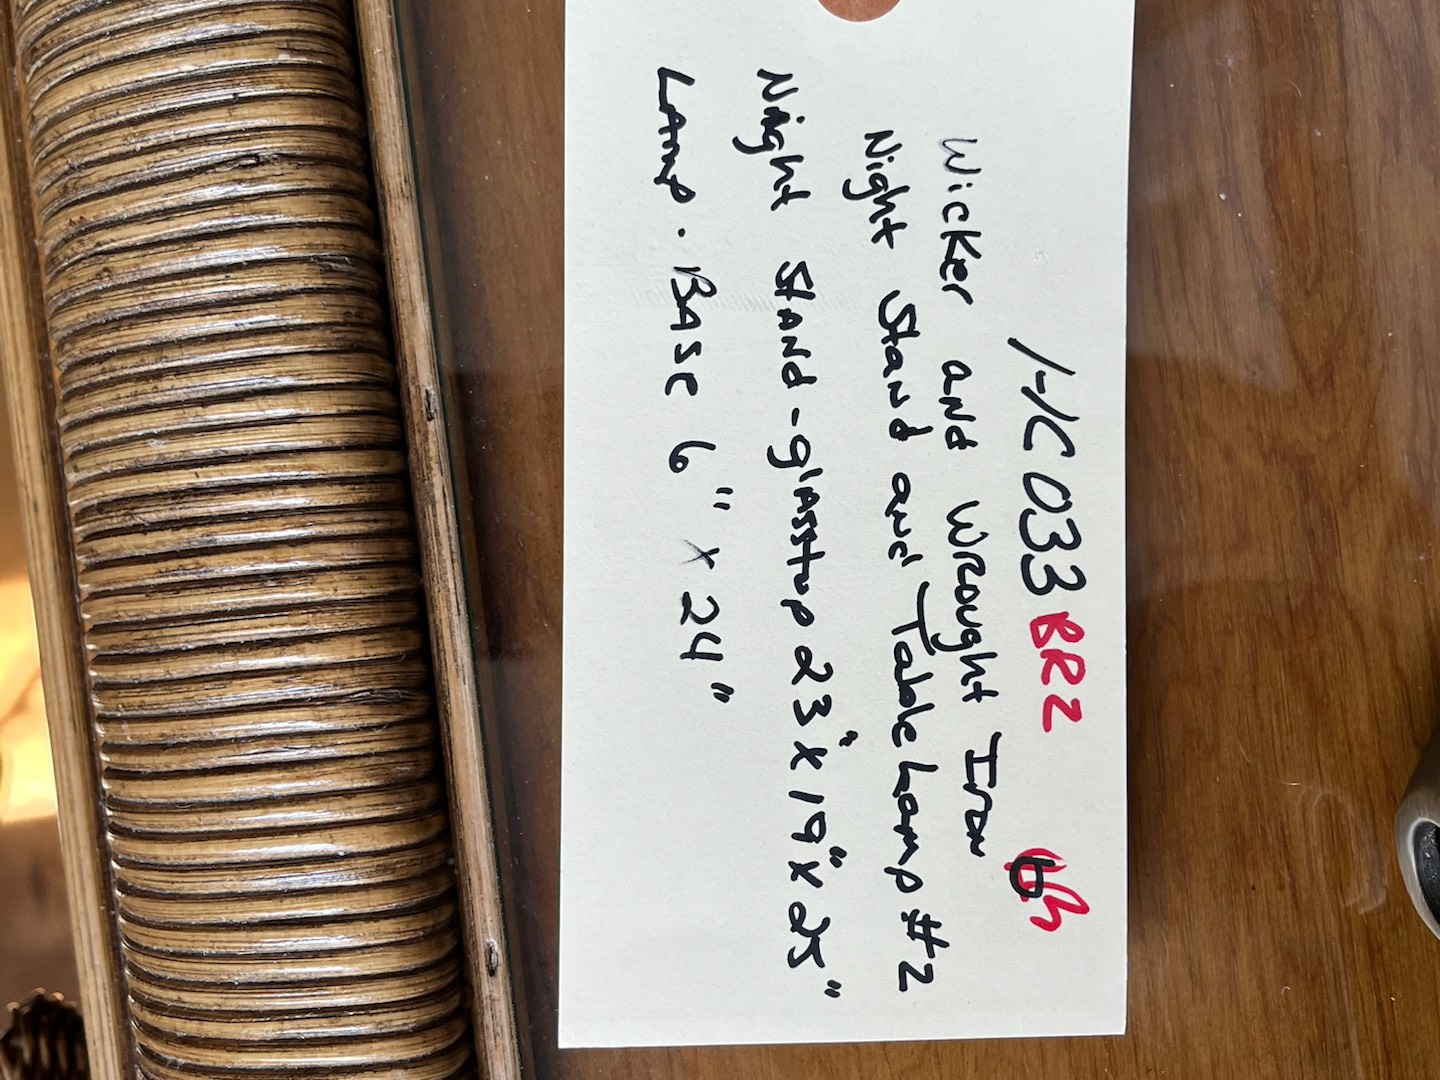 HC033 BR2
Wicker and Wrought Iron
Night Stand and Table Lamp #2
Night Stand - glasstop 23" x 19" x 25"
Lamp. Base 6" x 24"